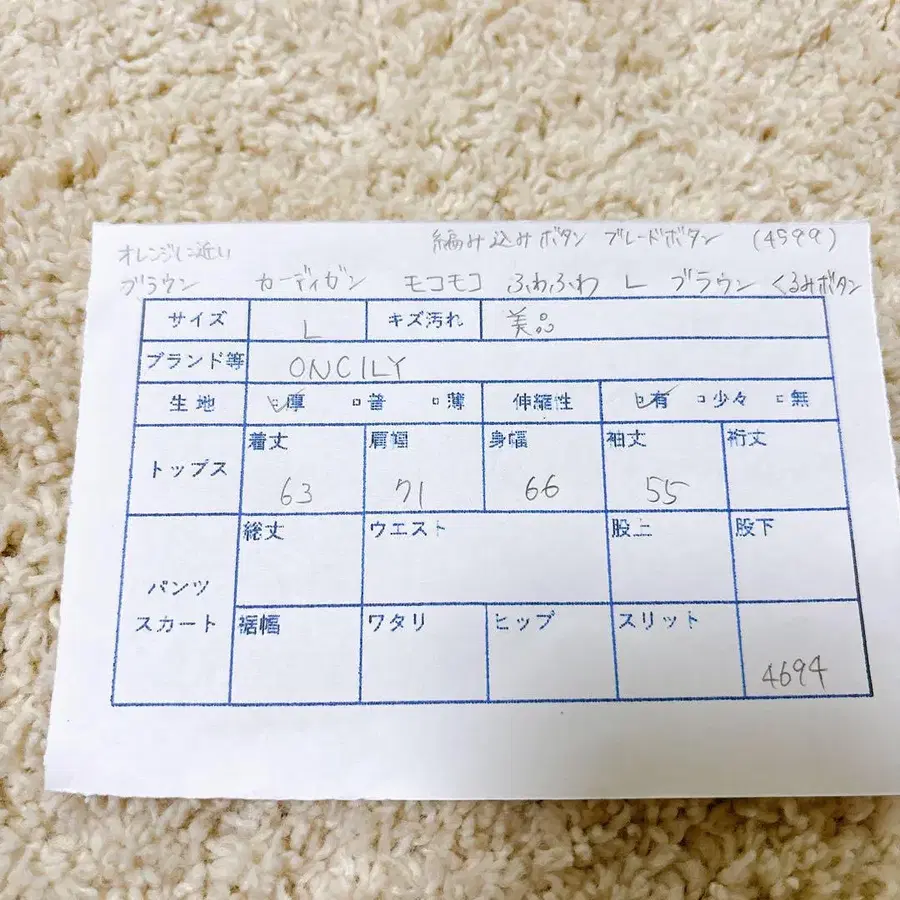 編み込みボタン ブレードボタン (4599)
オレンジに近い
ブラウン カーディガン モコモコ ふわふわ L ブラウン くるみボタン
サイズ L キズ汚れ 美品
ブランド等 ONCILY
生地 ☑厚 □普 □薄 伸縮性 ☑有 □少々 □無
トップス 着丈 肩幅 身幅 袖丈 裄丈
63 71 66 55
パンツ スカート 総丈 ウエスト 股上 股下
裾幅 ワタリ ヒップ スリット
4694